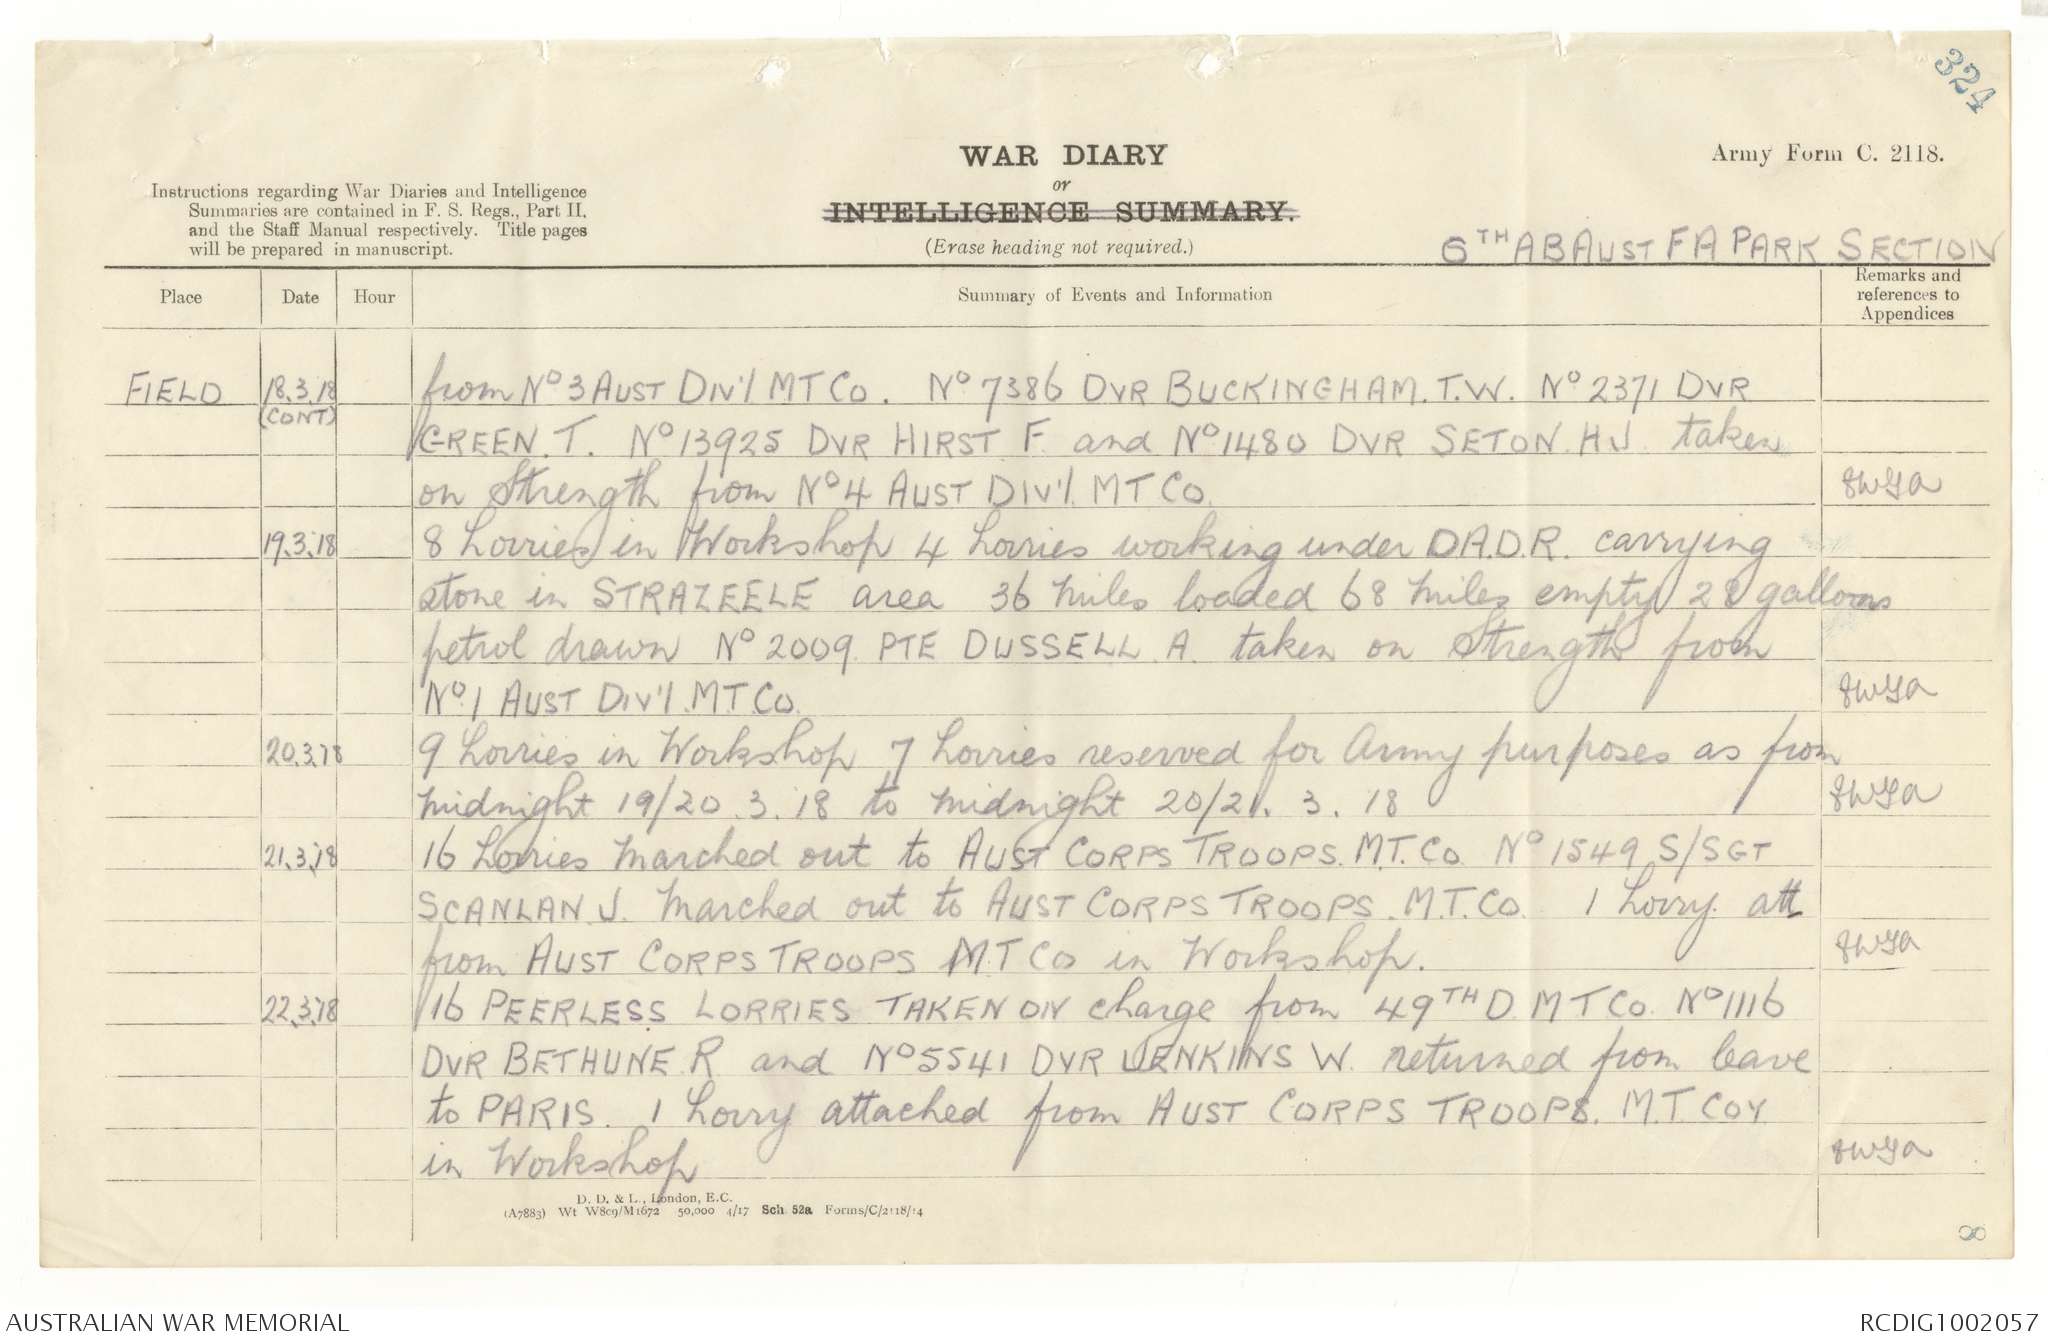 324
WAR DIARY
or
INTELLIGENCE SUMMARY.
(Erase heading not required.)
Army Form C. 2118.
Instructions regarding War Diaries and Intelligence
Summaries are contained in F. S. Regs., Part II,
and the Staff Manual respectively. Title pages
will be prepared in manuscript.
6TH AB AUST F A PARK SECTION
Place Date Hour Summary of Events and Information Remarks and
references to
Appendices
FIELD 18.3.18 from No 3 AUST DIV'L MT Co. No 7386 DVR BUCKINGHAM. T.W. No 2371 DVR
(CONT) GREEN. T. No 13925 DVR HIRST F. and No 1480 DVR SETON. HJ. taken
on Strength from No 4 AUST DIV'L. MT Co.
19.3.18 8 Lorries in Workshop 4 Lorries working under D.A.D.R. carrying
stone in STRAZEELE area 36 miles loaded 68 miles empty 28 gallons
petrol drawn No 2009. PTE DUSSELL. A. taken on Strength from
No 1 AUST DIV'L. M.T. Co.
20.3.18 9 Lorries in Workshop 7 Lorries reserved for Army purposes as from
midnight 19/20. 3. 18 to midnight 20/21. 3. 18
21.3.18 16 Lorries marched out to AUST CORPS TROOPS. M.T. Co. No 1549 S/SGT
SCANLAN. J. marched out to AUST CORPS TROOPS. M.T. Co. 1 Lorry. att
from AUST CORPS TROOPS MT Co in Workshop.
22.3.18 16 PEERLESS LORRIES TAKEN ON charge from 49TH D. MT Co. No 1116
DVR BETHUNE. R. and No 5541 DVR JENKINS W. returned from leave
to PARIS. 1 Lorry attached from AUST CORPS TROOPS. M.T. COY
in Workshop
D. D. & L., London, E.C.
(A7883) Wt W809/M1672 50,000 4/17 Sch. 52a Forms/C/2118/14
8
AUSTRALIAN WAR MEMORIAL
RCDIG1002057